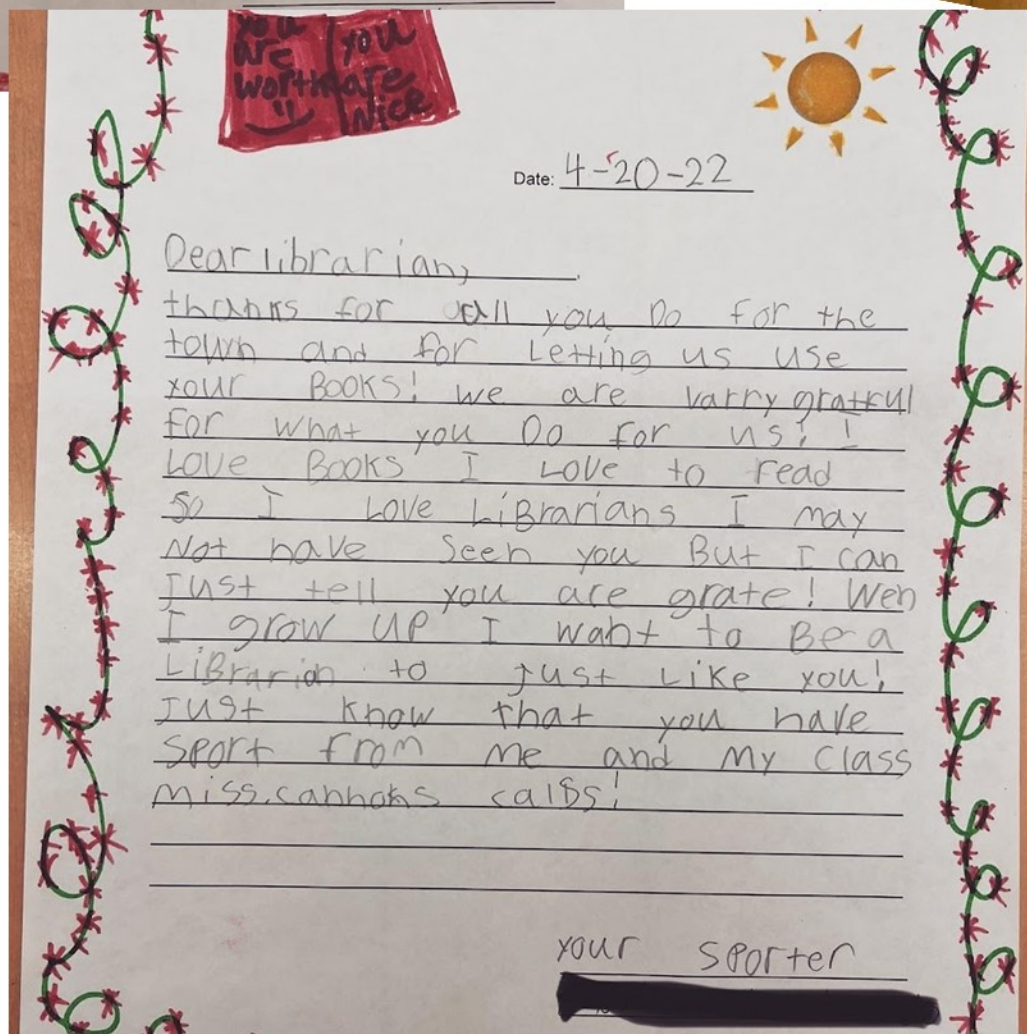 you you
are are
worth Nice
Date: 4-20-22
Dear librarian,
thanks for all you Do for the
town and for Letting us use
your BOOKS! we are varry gratful
for what you Do for us! I
Love BOOKS I Love to read
so I Love LiBrarians I may
Not have seen you But I can
Just tell you are grate! Wen
I grow up I want to Be a
LiBrarian to Just Like you!
Just know that you have
sport from me and my class
miss.cannons
your sporter